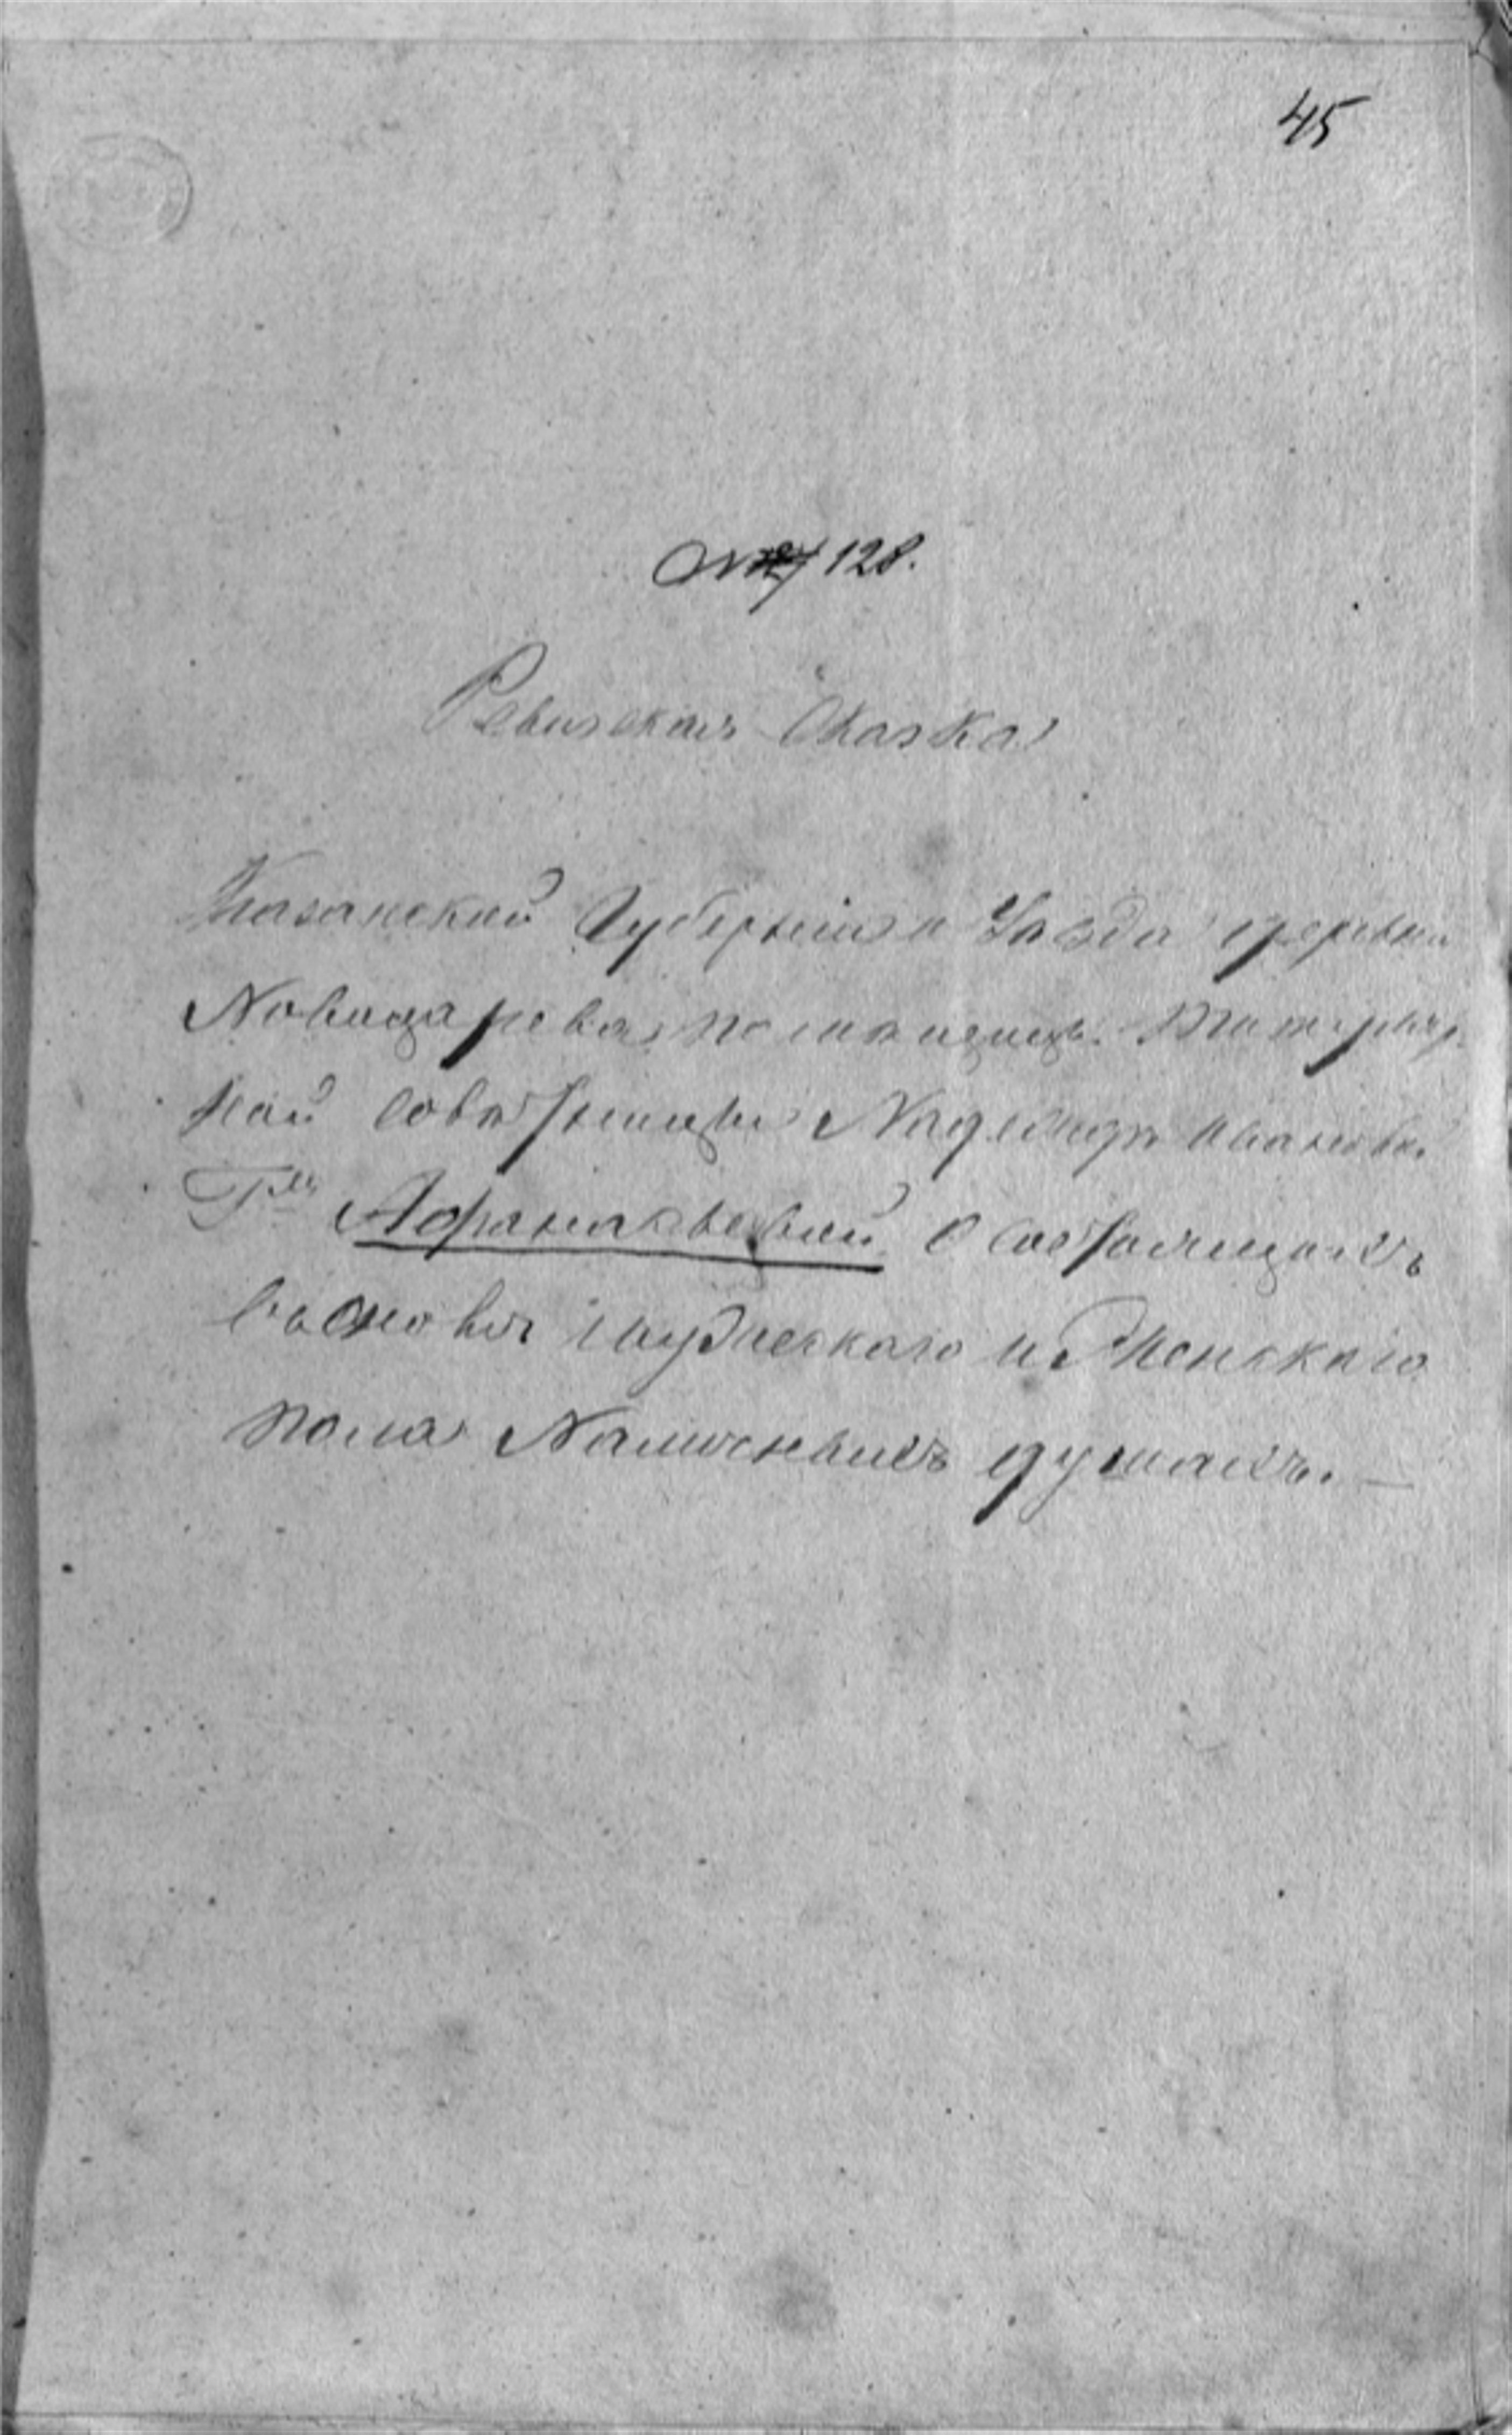 45
№ 128.
Ревизская Сказка
Казанской Губернии и Уезда деревни
Новацарева помещицы Титуляр
ной советницы Надежды Ивановны
Г<sup>жи</sup> Афанасьевой О состоящихъ
заоною мужескаго и Женскаго
пола Наличныхъ душахъ. —